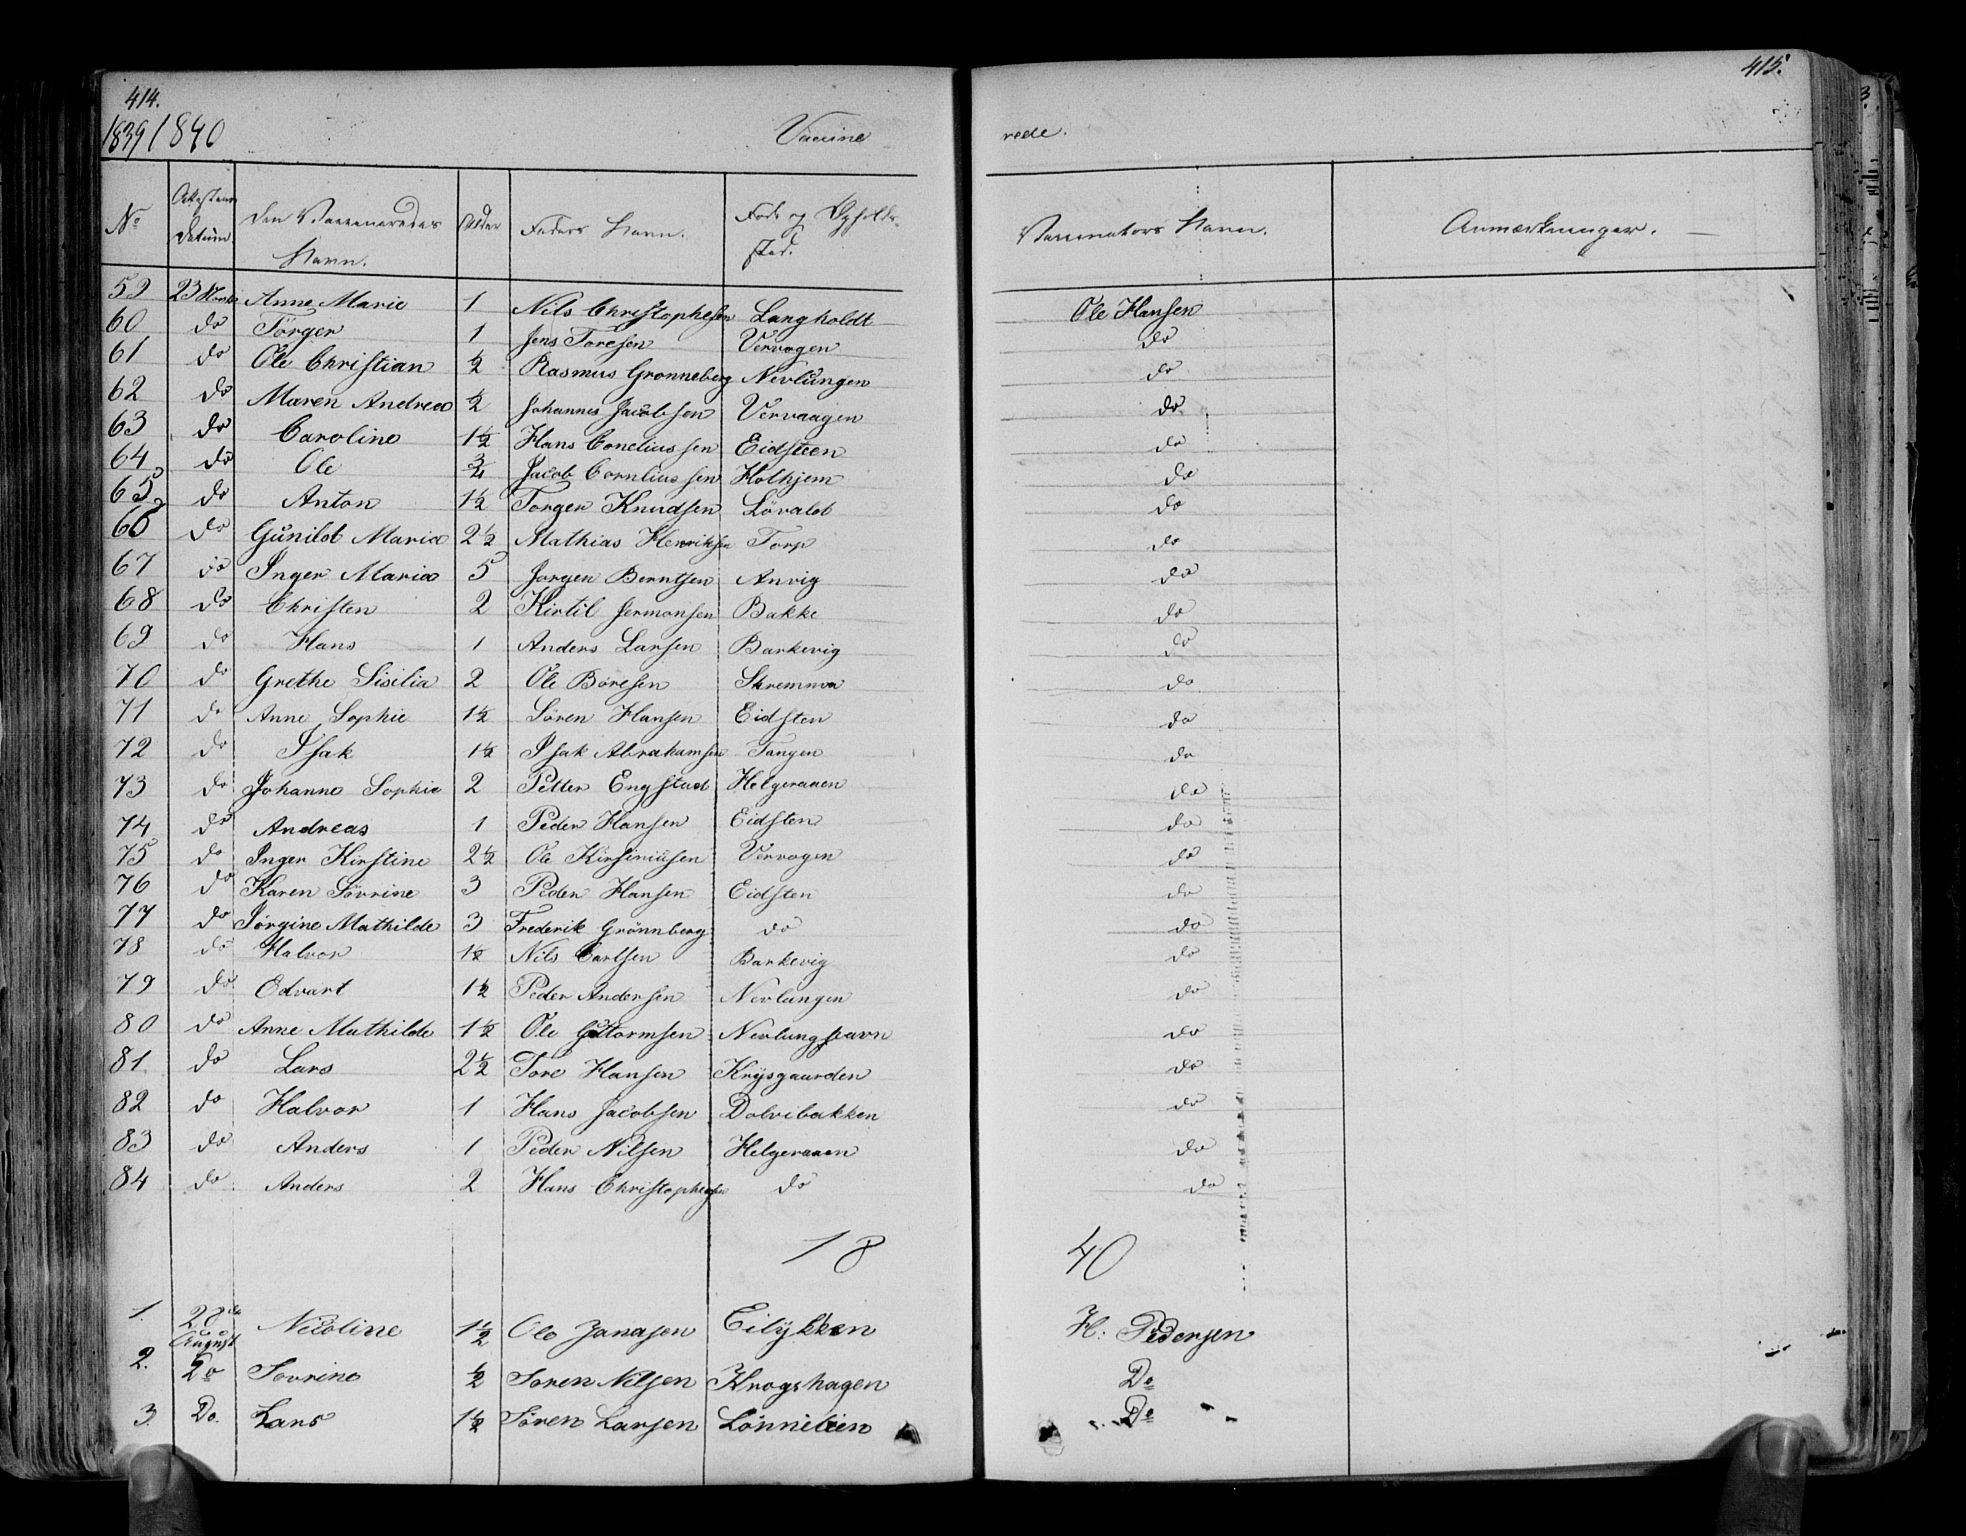 414. 415.
1839/1840 Vaccine rede.
No Attestens Datum. Den Vaccineredes Navn. Alder Faders Navn. Føde og Opholds sted. Vaccinators Navn. Anmærkninger.
59 23 Anne Marie 1 Nils Christophesen Langholdt Ole Hansen
60 do Törger 1 Jens Toresen Vervogen do
61 do Ole Christian 1/2 Rasmus Gronneberg Nevlungen do
62 do Maren Andrea 1/2 Johannes Jacobsen Vervaagen do
63 do Caroline 1 1/2 Hans Coneliussen Eidsteen do
64 do Ole 3/4 Jacob Corneliussen Holhjem do
65 do Anton 1 1/2 Torger Knudsen Lövald do
66 do Gunild Maria 2 1/2 Mathias Henriksen Torp do
67 do Inger Maria 5 Jorgen Berntsen Anvig do
68 do Christen 2 Kirtil Jermonsen Bakke do
69 do Hans 1 Anders Larsen Barkevig do
70 do Grethe Sisilia 2 Ole Böresen Skremmen do
71 do Anne Sophie 1 1/2 Sören Hansen Eidsten do
72 do Isak 1 1/2 Isak Abrahamsen Tangen do
73 do Johanne Sophie 2 Petter Engstad Helgeraaen do
74 do Andreas 1 Peder Hansen Eidsten do
75 do Inger Kirstine 2 1/2 Ole Kirsiniusen Vervogen do
76 do Karen Sövrine 3 Peder Hansen Eidsten do
77 do Jörgine Mathilde 3 Frederik Grönnberg do do
78 do Halvor 1 1/2 Nils Carlsen Barkevig do
79 do Edvart 1 1/2 Peder Andersen Nevlungen do
80 do Anne Mathilde 1 1/2 Ole Guttormsen Nevlunghavn do
81 do Lars 2 1/2 Tore Hansen Krysgaarden do
82 do Halvor 1 Hans Jacobsen Dolvibakken do
83 do Anders 1 Peder Nilsen Helgeraaen do
84 do Anders 2 Hans Christophersen do do
18 40
1. 28de August Nicoline 1 1/2 Ole Janasen Eilykken H: Pedersen
2. Do Sovrine 1/2 Soren Nilsen Krogshagen Do
3. Do. Lars 1 1/2 Sören Larsen Lönnelien Do